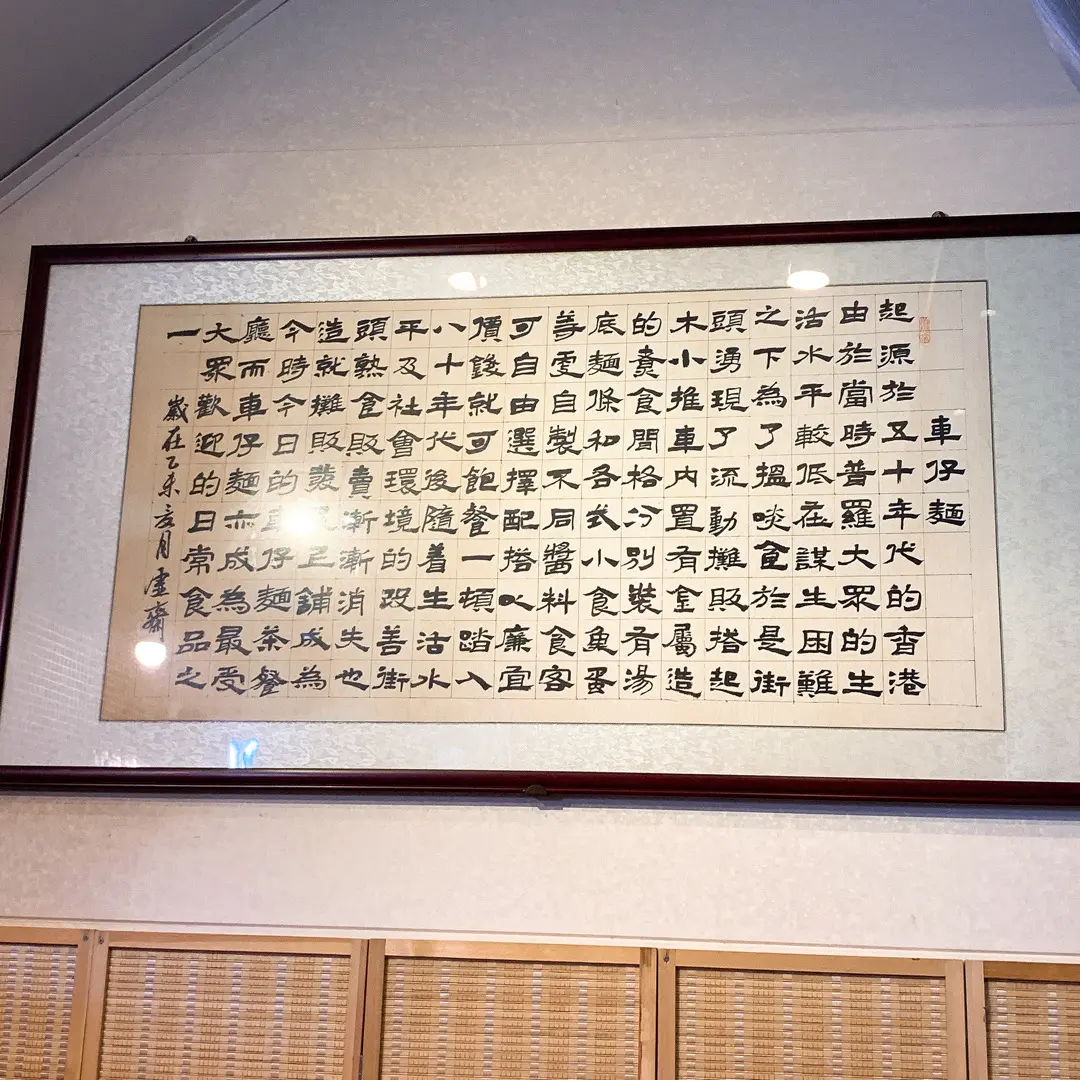 車仔麵
起源於五十年代的香港
由於當時普羅大眾的生
活水平較低在謀生困難
之下為了搵啖食於是街
頭湧現了流動攤販搭起
木小推車內置有金屬造
的煑食間格分別裝有湯
底麵條和各式小食魚蛋
自製不同醬料食客
可自由選擇配搭以廉宜
價錢就可飽餐一頓踏入
八十年代後隨着生活水
平及社會環境的改善街
頭熟食販賣漸漸消失也
造就攤販發正舖成為
今時今日的仔麵茶餐
廳而車仔麵亦成為最受
大眾歡迎的日常食品之
一
歲在乙未月虛齋